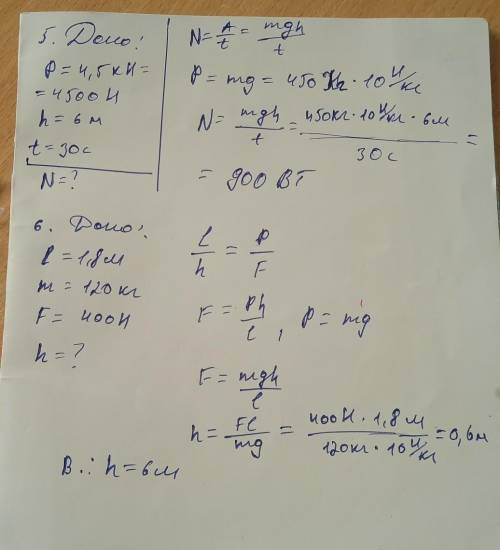 5. Дано:
P = 4,5 кН =
= 4500 Н
h = 6 м
t = 30 с
N = ?
N = A/t = mgh/t
P = mg = 450 кг · 10 Н/кг
N = mgh/t = 450кг · 10 Н/кг · 6м / 30 с =
= 900 ВТ
6. Дано:
l = 1,8 м
m = 120 кг
F = 400 Н
h = ?
l/h = P/F
F = Ph/l , P = mg
F = mgh/l
h = Fl/mg = 400 Н · 1,8 м / 120кг · 10 Н/кг = 0,6м
В.: h = 6 м